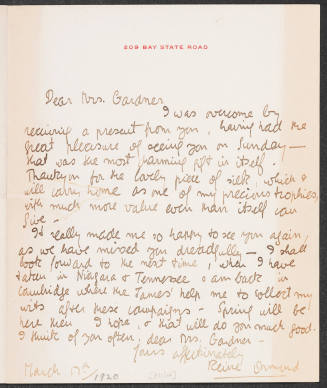 209 BAY STATE ROAD
Dear Mrs. Gardner
I was overcome by
receiving a present from you, having had the
great pleasure of seeing you on Sunday —
that was the most charming gift in itself.
Thankyou for the lovely piece of silk, which I
will carry home as one of my precious trophies,
with much more value even than itself can
give —
It really made me so happy to see you again,
as we have missed you dreadfully — I shall
look forward to the next time, when I have
taken in Niagara & Tennessee & am back in
Cambridge where the James' help me to collect my
wits after these campaigns — Spring will be
here then I hope, & that will do you much good.
I think of you often, dear Mrs. Gardner —
Yours affectionately
Reine Ormond
March 17th 1920